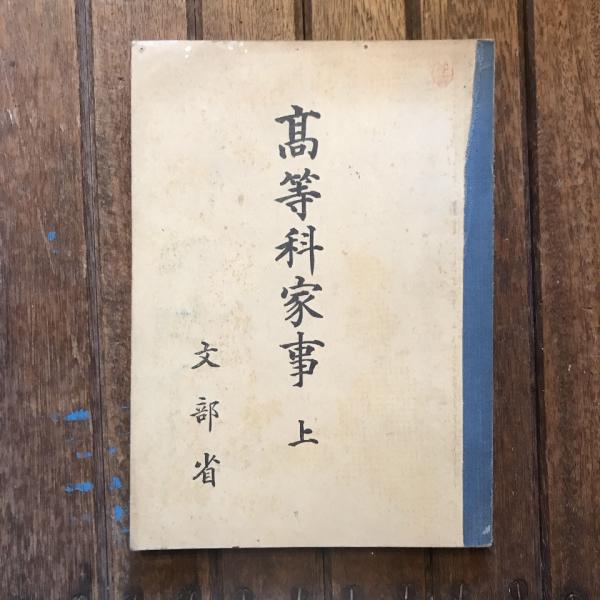 髙等科家事 上
文部省